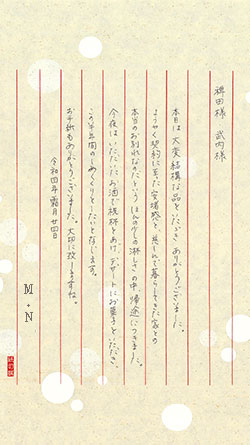 稗田様 武内様
本日は大変結構な品をいただき ありがとうございました。
ようやく契約に至った安堵感と、長い間 暮らしてきた家との
本当のお別れなのだという ほんの少しの淋しさの中、帰途につきました。
今夜は いただいたお酒で祝杯をあげ、デザートにお菓子をいただき、
この半年間のしめくくりとしたいと存じます。
お手紙もありがとうございました。大切に致しますね。
令和四年 霜月廿四日
M + N